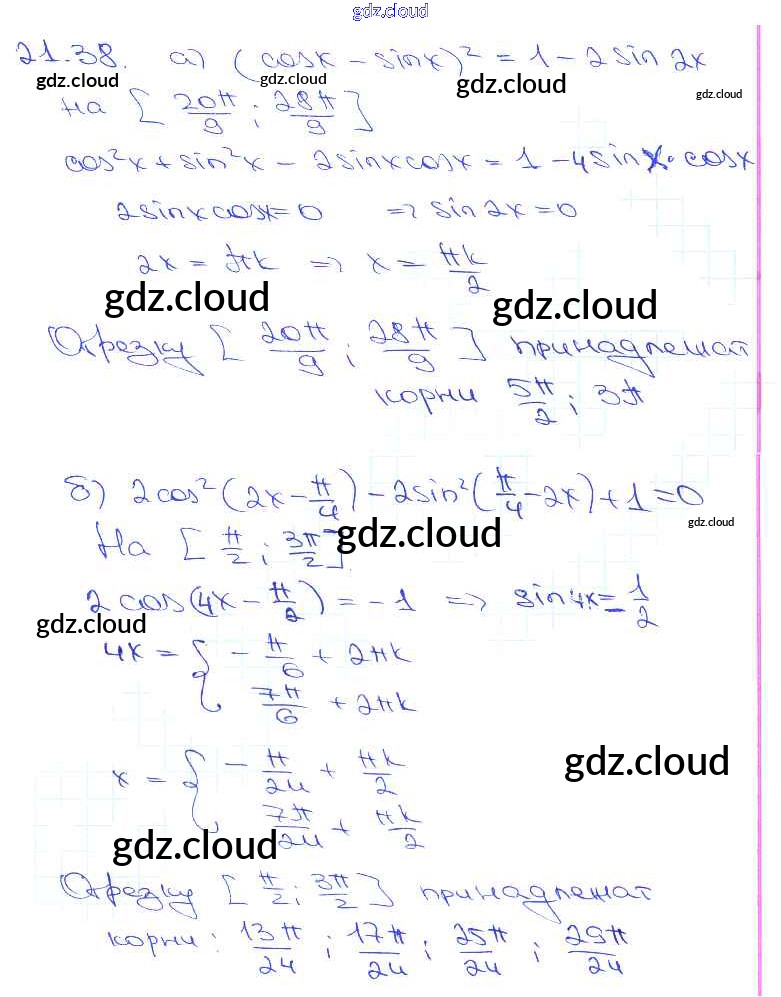 gdz.cloud
21.38. а) (cosx - sinx)² = 1 - 2 sin 2x
gdz.cloud gdz.cloud gdz.cloud gdz.cloud
на [20π/9 ; 28π/9]
cos²x + sin²x - 2sinxcosx = 1 - 4sinx·cosx
2sinxcosx = 0 => sin2x = 0
2x = πk => x = πk/2
gdz.cloud gdz.cloud
Отрезку [20π/9 ; 28π/9] принадлежат
корни 5π/2 ; 3π
б) 2cos²(2x - π/4) - 2sin²(π/4 - 2x) + 1 = 0
gdz.cloud
На [π/2 ; 3π/2]
gdz.cloud
2cos(4x - π/2) = -1 => sin4x = 1/2
gdz.cloud
4x = { -π/6 + 2πk
7π/6 + 2πk
x = { -π/24 + πk/2
gdz.cloud
7π/24 + πk/2
gdz.cloud
Отрезку [π/2 ; 3π/2] принадлежат
корни: 13π/24 ; 17π/24 ; 25π/24 ; 29π/24